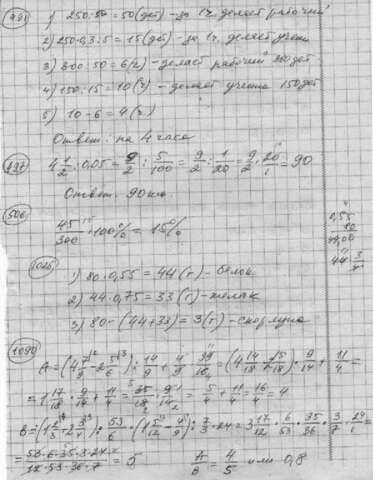 491 1) 250 : 5 = 50 (дет) - за 1 ч. делает рабочий
2) 250·0,3:5 = 15 (дет) - за 1 ч. делает учен.
3) 300:50 = 6 (ч) - делает рабочий 300 дет
4) 150:15 = 10 (ч) - делает ученик 150 дет
5) 10 - 6 = 4 (ч)
Ответ: на 4 часа
4 1/2 : 0,05 = 9/2 : 5/100 = 9/2 : 1/20 = 9/2 · 20/1 = 90
Ответ: 90 км.
506
45/300 · 100% = 15%
0,55
80
44,00
44 · 3/4
1025
1) 80·0,55 = 44 (г) - белок
2) 44·0,75 = 33 (г) - желток
3) 80 - (44+33) = 3 (г) - скорлупа
1090
A = (4 7/9 - 2 5/6) : 14/9 + 4/9 · 99/16 = (4 14/18 - 2 15/18) · 9/14 + 11/4 =
= 1 17/18 · 9/14 + 11/4 = 35/18 · 9/14 + 11/4 = 5/4 + 11/4 = 16/4 = 4
B = (1 2/3 + 2 3/4) : 53/6 · (1 5/12 - 4/9) : 7/3 · 24 = 3 17/12 · 6/53 · 35/36 · 3/7 · 24/1 =
= 53·6·35·3·24 / 12·53·36·7 = 5
A/B = 4/5 или 0,8